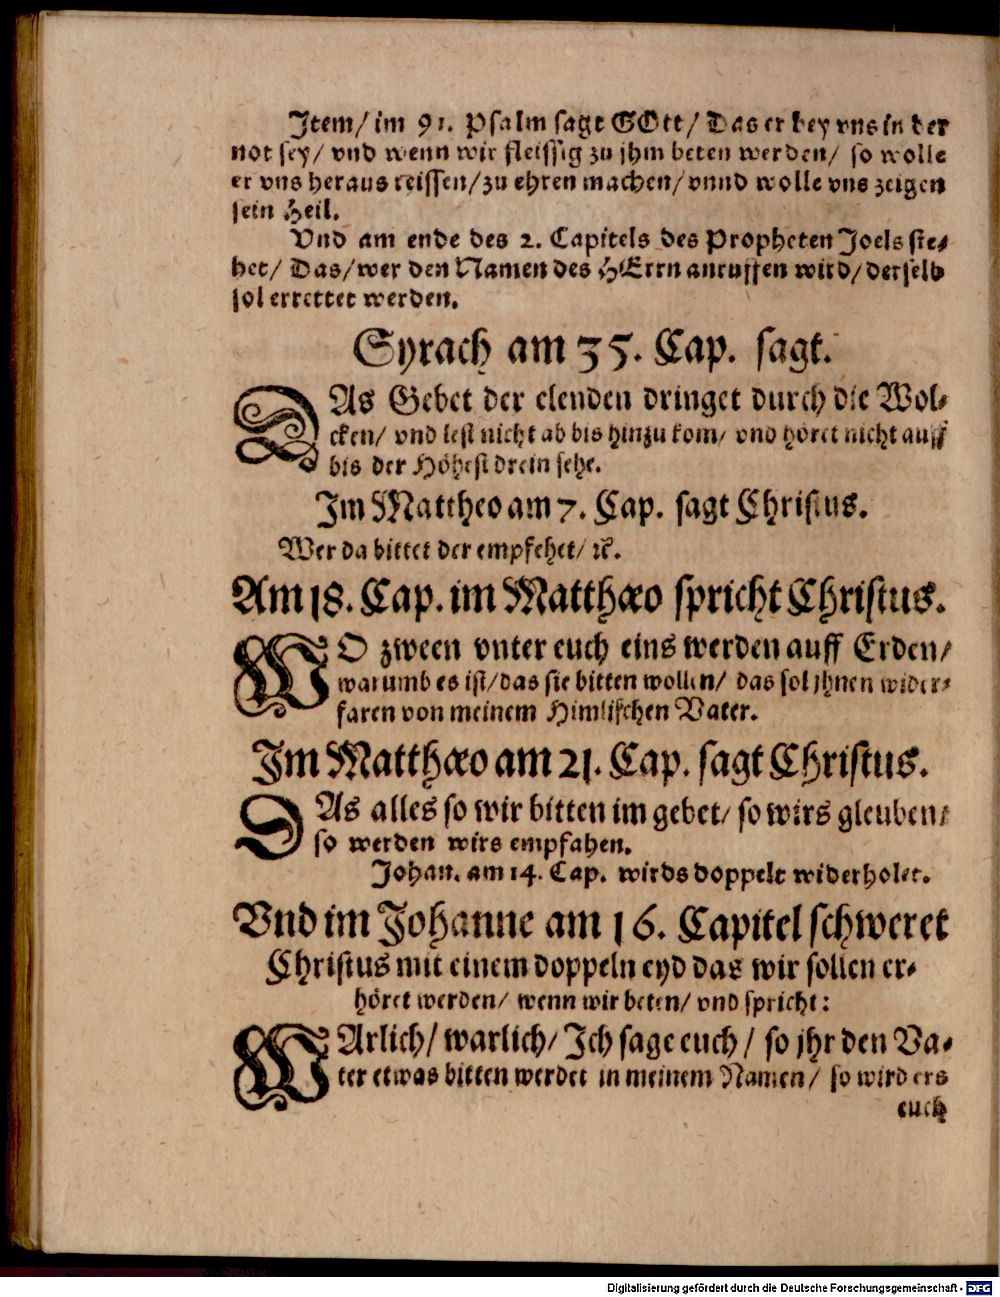 Item/ im 91. Psalm sagt GOtt/ Das er bey vns in der
not sey/ vnd wenn wir fleissig zu jhm beten werden/ so wolle
er vns heraus reissen/ zu ehren machen/ vnnd wolle vns zeigen
sein Heil.
Vnd am ende des 2. Capitels des Propheten Joels ste-
het/ Das/ wer den Namen des HErrn anruffen wird/ derselb
sol errettet werden.
Syrach am 35. Cap. sagt.
DAs Gebet der elenden dringet durch die Wol-
cken/ vnd lest nicht ab bis hinzu kom/ vnd höret nicht auff
bis der Höhest drein sehe.
Im Mattheo am 7. Cap. sagt Christus.
Wer da bittet der empfehet/ ꝛc.
Am 18. Cap. im Matthæo spricht Christus.
WO zween vnter euch eins werden auff Erden/
warumb es ist/ das sie bitten wollen/ das sol jhnen wider-
faren von meinem Himlischen Vater.
Im Matthæo am 21. Cap. sagt Christus.
DAs alles so wir bitten im gebet/ so wirs gleuben/
so werden wirs empfahen.
Johan. am 14. Cap. wirds doppelt widerholet.
Vnd im Johanne am 16. Capitel schweret
Christus mit einem doppeln eyd das wir sollen er-
höret werden/ wenn wir beten/ vnd spricht:
WArlich/ warlich/ Ich sage euch/ so jhr den Va-
ter etwas bitten werdet in meinem Namen/ so wird ers
euch
Digitalisierung gefördert durch die Deutsche Forschungsgemeinschaft - DFG